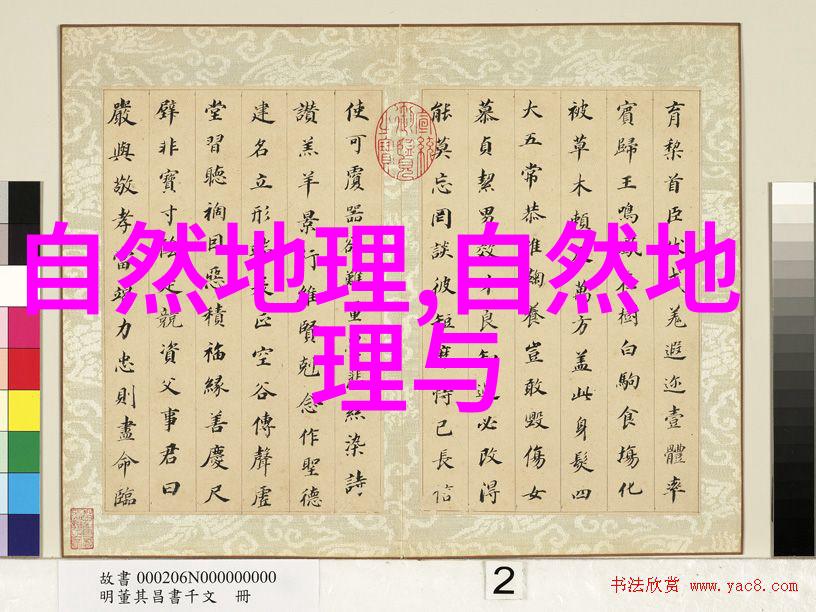 自然地理,自然地
理与
育棃首臣伏戎羌遐迩壹體率
賓歸王鳴鳳在樹白駒食場化
被草木賴萬方蓋此身髮四
大五常恭惟鞠養豈敢毀傷女
慕貞絜男效才良知過必改得
能莫忘罔談彼短靡恃己長信
使可覆器欲難量悲絲染詩
讚羔羊景行維賢剋念作聖德
建名立形端表正空谷傳聲虛
堂習聽禍因惡積福緣善慶尺
璧非寶寸陰是競資父事君曰
嚴與敬孝當竭力忠則盡命臨
宣統御覽之寶
故書 000206N000000000
明董其昌書千文 冊
2
书法欣赏 www.yac8.com